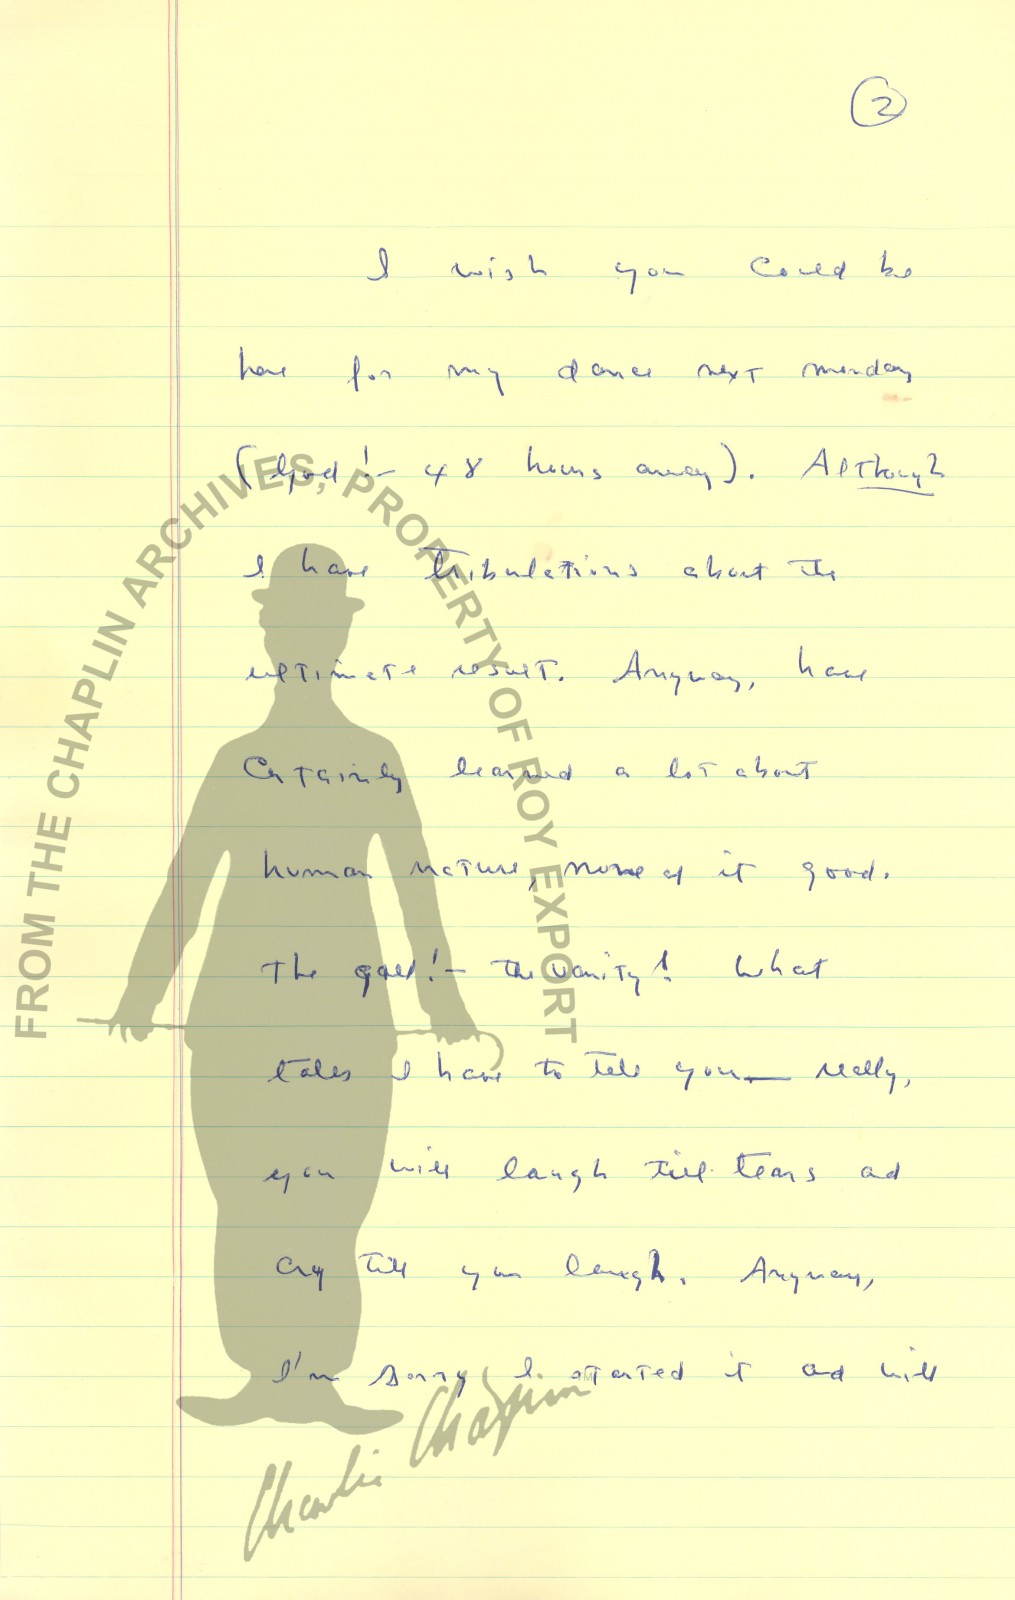 2
I wish you could be
here for my dance next monday
(God! – 48 hours away). Although
I have tribulations about the
ultimate result. Anyway, have
Certainly learned a lot about
human nature, none of it good.
The gall! – The vanity! What
tales I have to tell you — really,
you will laugh till tears ad
cry till you laugh. Anyway,
I'm sorry I started it ad will
FROM THE CHAPLIN ARCHIVES, PROPERTY OF ROY EXPORT
Charlie Chaplin